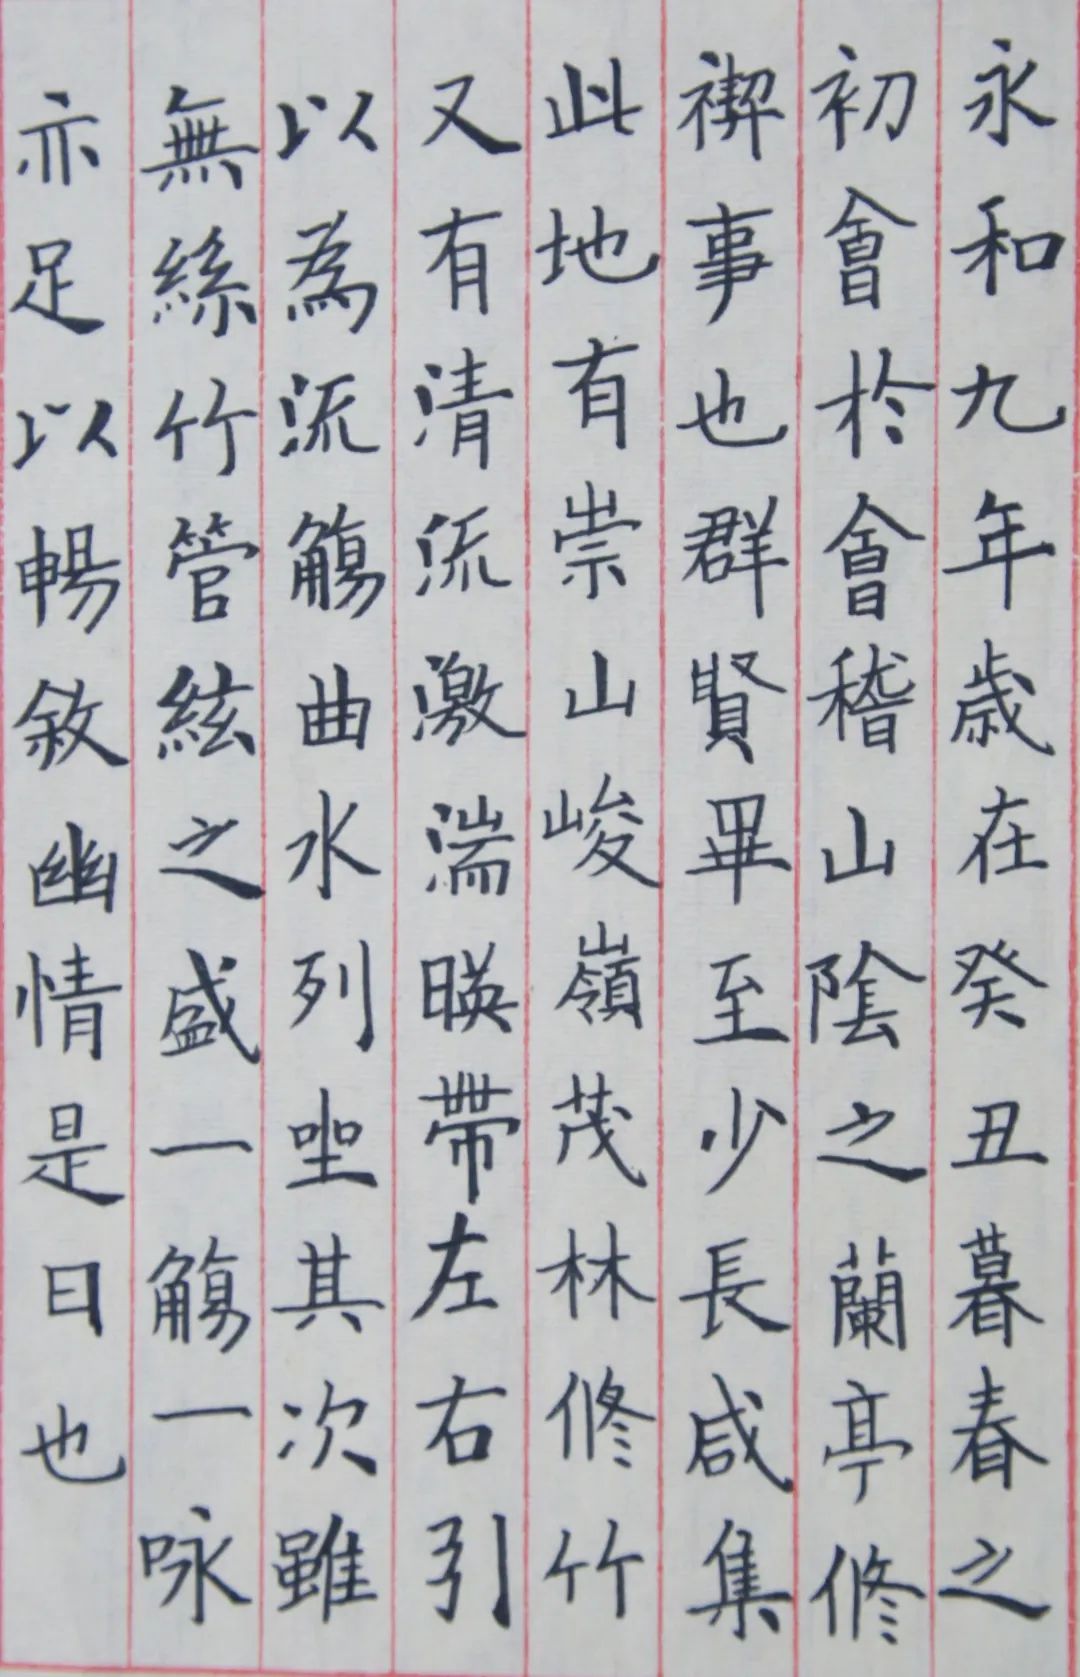 永和九年歲在癸丑暮春之
初會於會稽山陰之蘭亭修
禊事也群賢畢至少長咸集
此地有崇山峻嶺茂林修竹
又有清流激湍暎帶左右引
以為流觴曲水列坐其次雖
無絲竹管絃之盛一觴一咏
亦足以暢敘幽情是日也